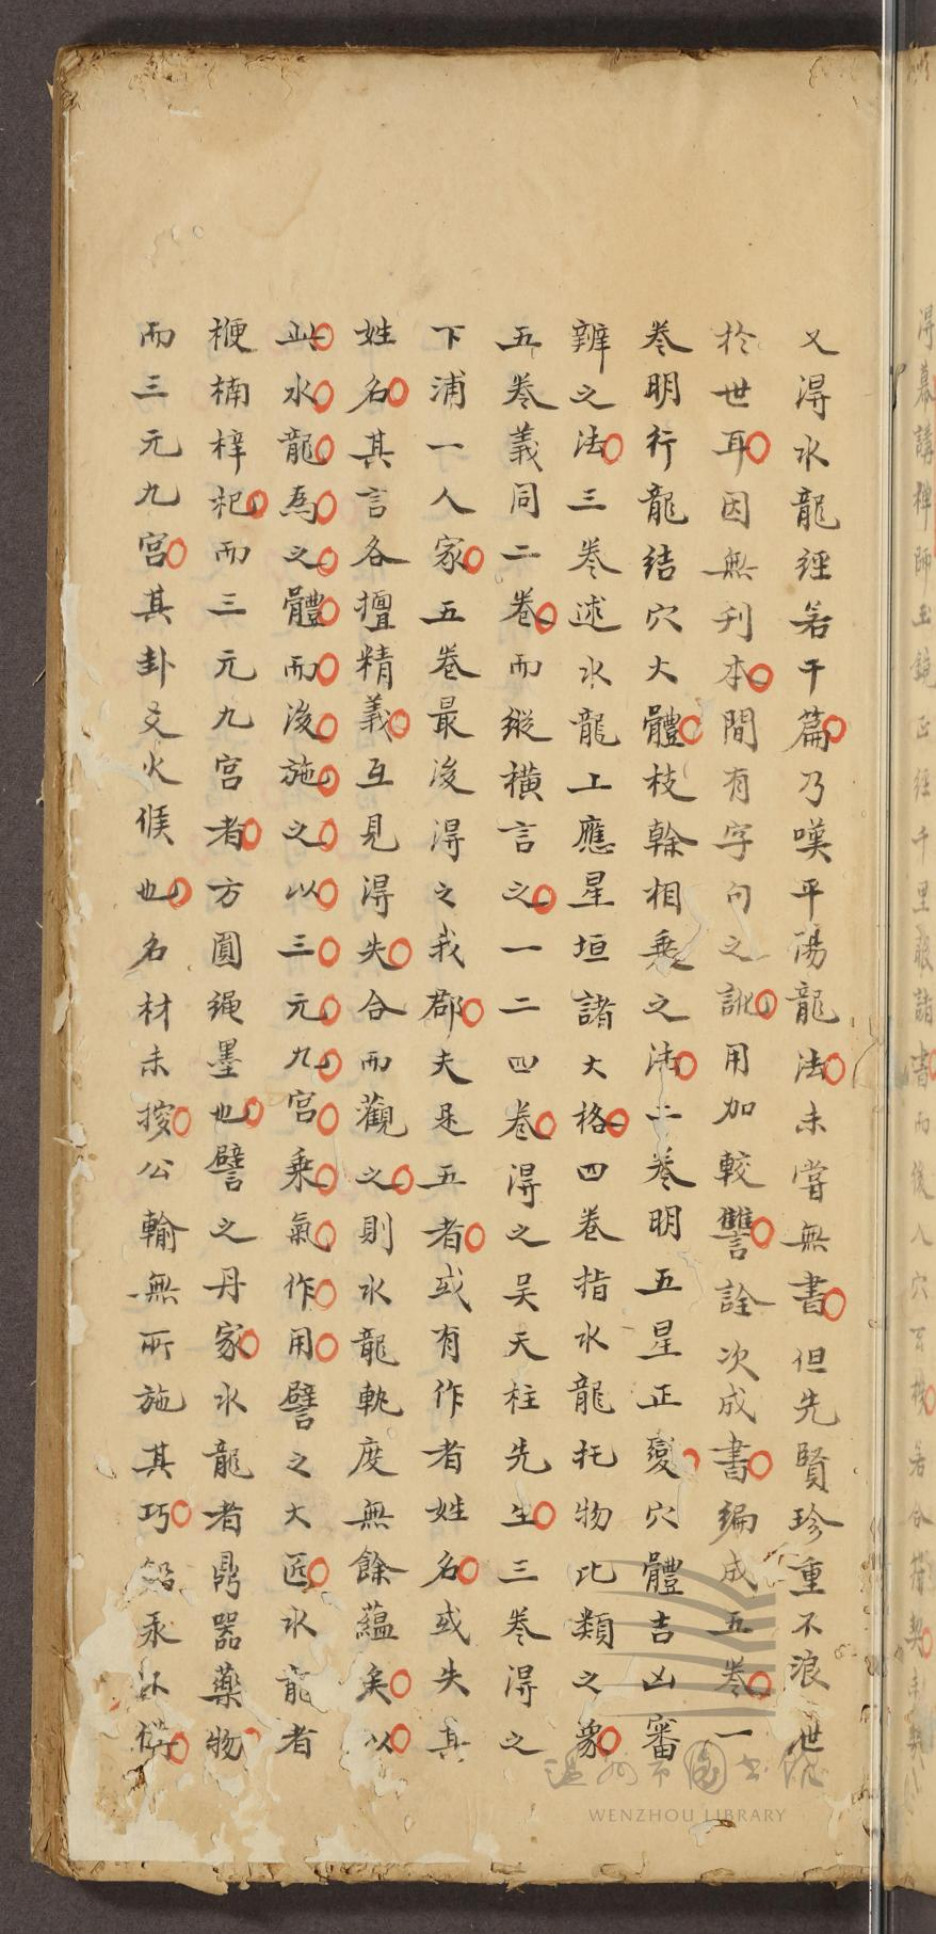 又得水龍經若干篇乃嘆平陽龍法未嘗無書但先賢珍重不浪世
於世耳因無刋本間有字句之訛用加較讐詮次成書編成五卷一
卷明行龍結穴大體枝幹相乗之法二卷明五星正變穴體吉凶審
辨之法三卷述水龍上應星垣諸大格四卷指水龍托物比類之象
五卷義同二卷而縱横言之一二四卷得之吴天柱先生三卷得之
下浦一人家五卷最後得之我郡夫是五者或有作者姓名或失其
姓名其言各擅精義互見得失合而觀之則水龍軌度無餘蘊矣以
此水龍為之體而後施之以三元九宫乗氣作用譬之大匠水龍者
楩楠梓杞而三元九宫者方圓绳墨也譬之丹家水龍者鼎器藥物
而三元九宫其卦爻火候也名材未㨶公輸無所施其巧鉛汞
温州市圖書館
WENZHOU LIBRARY